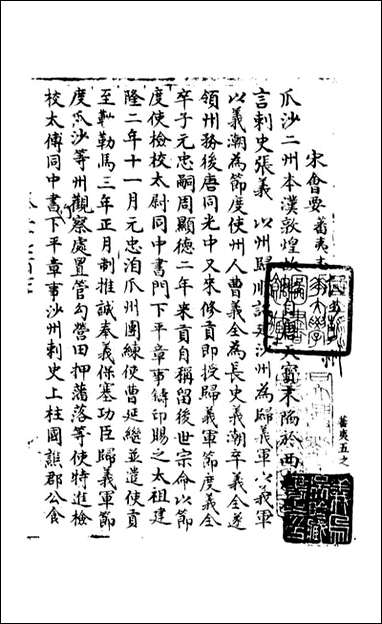 宋會要 蕃夷
蕃夷五之
瓜沙二州本漢敦煌故地自唐天寶末陷於西
言刺史張義 以州歸順詔建沙州為歸義軍以義軍
以義潮為節度使州人曹義全為長史義潮卒義全遂
領州務後唐同光中又來修貢即授歸義軍節度義全
卒子元忠嗣周顯德二年來貢自稱留後世宗命以節
度使檢校太尉同中書門下平章事鑄印賜之太祖建
隆二年十一月元忠洎瓜州團練使曹延繼並遣使貢
至勒馬三年正月制推誠奉義保塞功臣歸義軍節
度瓜沙等州觀察處置管勾營田押蕃落等使特進檢
校太傅同中書下平章事沙州刺史上柱國譙郡公食